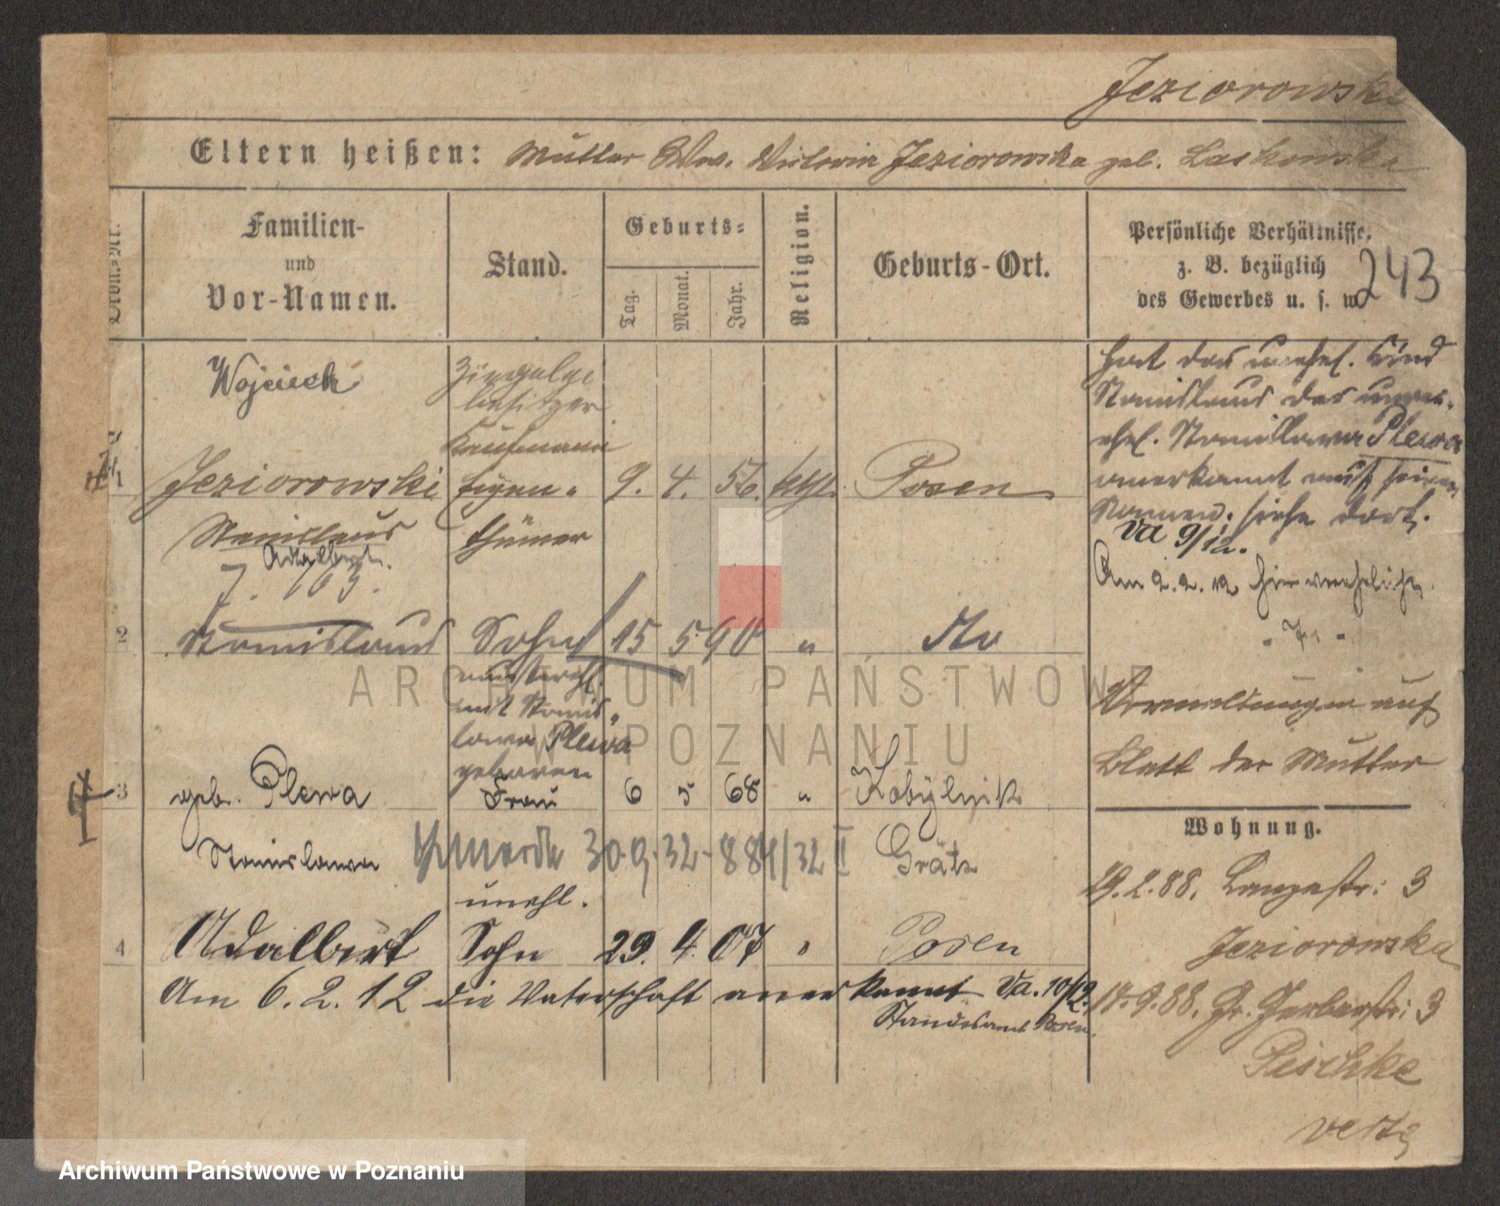 Jeziorowski
Eltern heißen: Mutter Wwe. Victoria Jeziorowska geb. Laskowska
Ordn.-Nr.
Familien-
und
Vor-Namen.
Stand.
Geburts-
Tag.
Monat.
Jahr.
Religion.
Geburts-Ort.
Persönliche Verhältnisse,
z. B. bezüglich
des Gewerbes u. s. w.
243
Wojciech
besitzer
Kaufmann
1 Jeziorowski Eigen- 9. 4. 56. kath. Posen
Stanislaus thümer
Adalbert.
7. 103.
hat das unehl. Kind
Stanislaus der unver-
ehel. Stanislawa Plewa
anerkannt auf seinen
Namen. siehe dort.
Va 9/12.
Am 2.2.12 hier verehelicht.
2 Stanislaus Sohn 15 5 90 " do
mit Stanis-
lawa Plewa
geboren
Vermeldungen auf
Blatt der Mutter
3 geb. Plewa Frau 6 5 68 " Kobylnik
Stanislawa 30.9.32 - 884/32 II Grätz
Wohnung.
19.2.88. Langestr: 3
Jeziorowska
17.9.88. Gr. Gerberstr: 3
Peschke
unehl.
4 Adalbert Sohn 29. 4. 07 " Posen
Am 6. 2. 12 die Vaterschaft anerkannt Va. 10/12.
Standesamt Posen.
ARCHIWUM PAŃSTWOWE
W POZNANIU
Archiwum Państwowe w Poznaniu